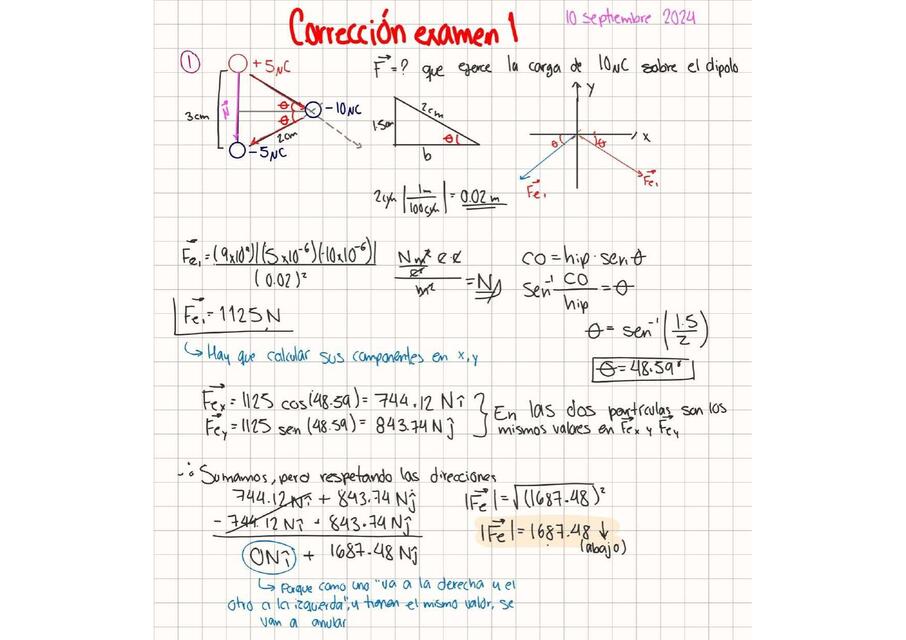 Corrección examen 1
10 septiembre 2024
①
+5nC
F = ? que ejerce la carga de 10nC sobre el dipolo
3cm
P
θ
θ
-10nC
2cm
-5nC
1.5cm
2cm
θ
b
y
x
θ
θ
Fe₁
Fe₁
2cm |1m / 100cm| = 0.02 m
Fe₁ = (9x10⁹)|(5x10⁻⁶)(-10x10⁻⁶)| / (0.02)²
N m² C C / C² / m² = N
CO = hip · sen θ
Sen⁻¹ CO / hip = θ
Fe₁ = 1125 N
θ = sen⁻¹ (1.5 / 2)
↳ Hay que calcular sus componentes en x, y
θ = 48.59°
Fex = 1125 cos(48.59) = 744.12 N î
Fey = 1125 sen(48.59) = 843.74 N ĵ
En las dos partículas son los
mismos valores en Fex y Fey
∴ Sumamos, pero respetando las direcciones
744.12 N î + 843.74 N ĵ
- 744.12 N î + 843.74 N ĵ
0N î + 1687.48 N ĵ
|Fe| = √(1687.48)²
|Fe| = 1687.48 ↓
(abajo)
↳ Porque como uno "va a la derecha y el
otro a la izquierda", y tienen el mismo valor, se
van a anular